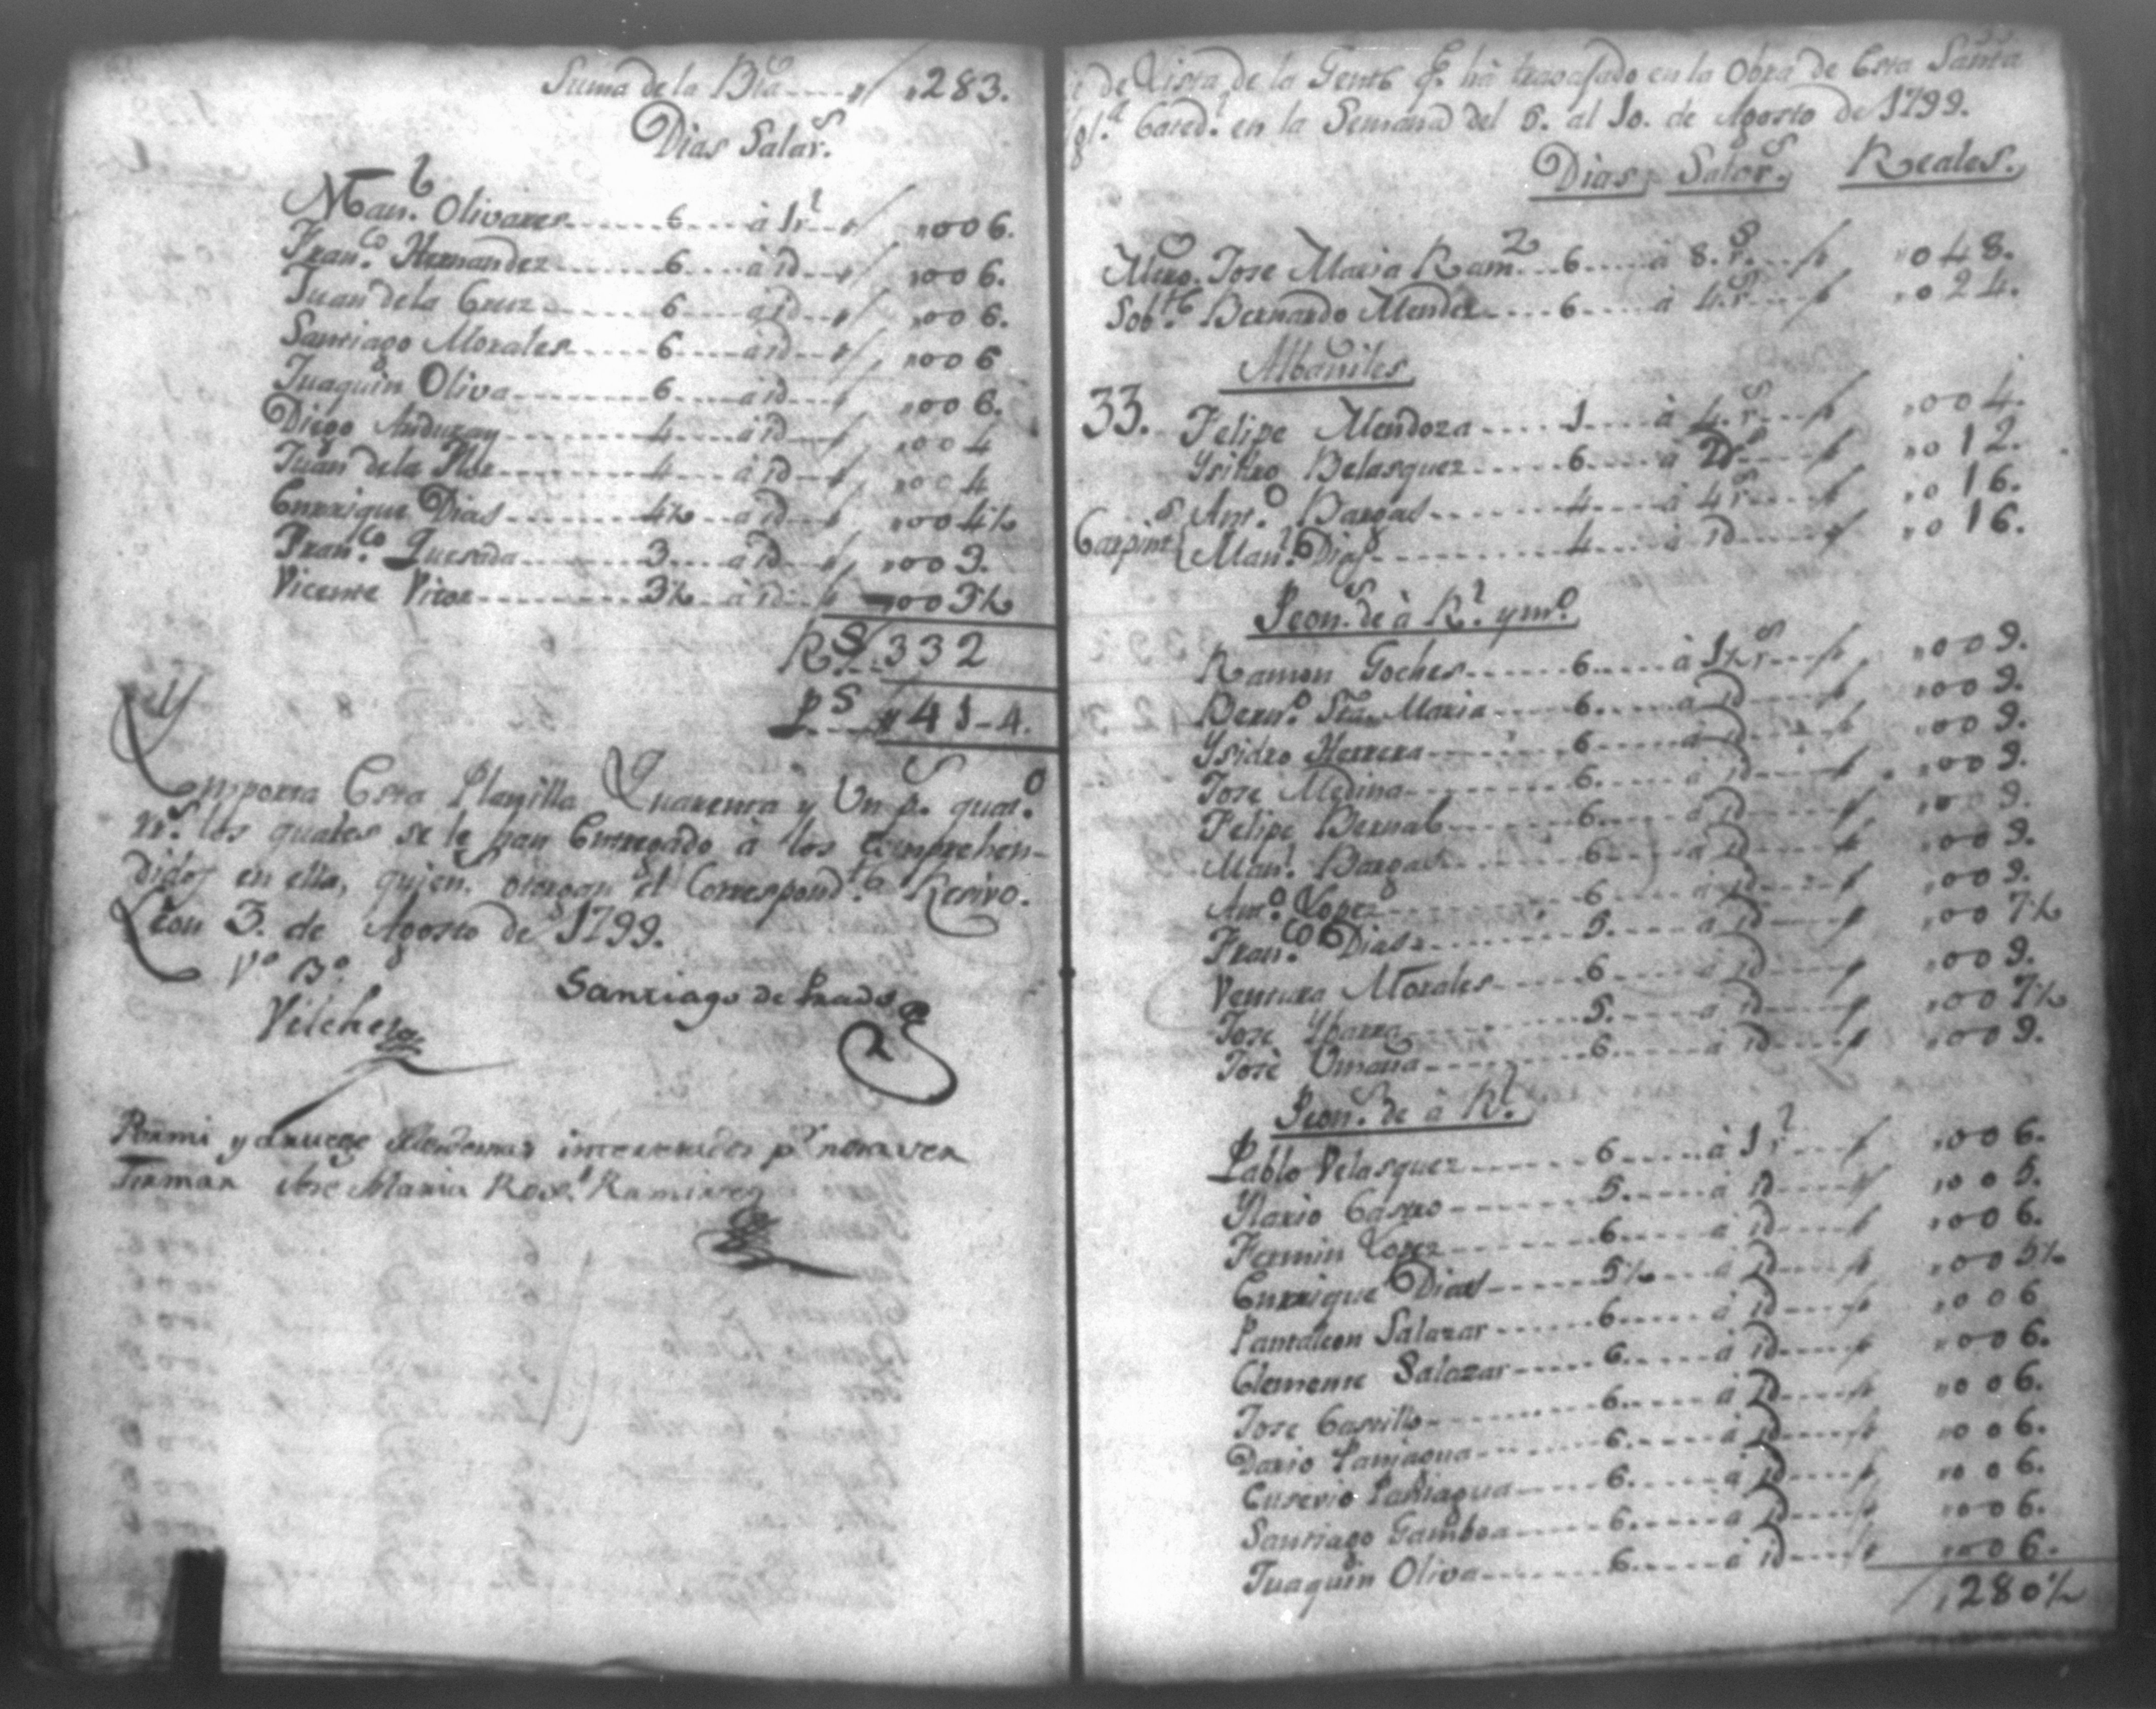 Suma de la Bta---- " / "283.
Dias Salar.s
Man.l Olivares------ 6 ---- à 1r.l -- " / "006.
Fran.co Hernandez------ 6 ---- à id --- " / "006.
Juan de la Cruz------ 6 ---- à id --- " / "006.
Santiago Morales----- 6 ---- à id --- " / "006
Juaquin Oliva------ 6 ---- à id --- " / "006.
Diego Anduray------ 4 ---- à id --- " / "004
Juan de la Flor------ 4 ---- à id --- " / "004
Enrrique Dias------ 4½ -- à id --- " / "004½
Fran.co Quesada------ 3 ---- à id --- " / "003.
Vicente Vitor------ 3½ -- à id --- " / "003½
R.s / 332
p.s " 41-4.
Ymporta Esta Planilla Quarenta y Un p.s quat.o
rr.s los quales se le han Entregado à los comprehen-
didos en ella, quien.s otorgan el Correspond.te Resivo.
Leon 3. de Agosto de 1799.
V.o B.o
Vilchez
Santiago de Prado
Pormi y aruego delosdemas interesados p.r nosaver
firmar Jose Maria Rod.s Ramires
de Lista de la Gente q.e ha travajado en la Obra de Esta Santa
Ygl.a Cated.l en la Semana del 5. al 10. de Agosto de 1799.
Dias, Salar.s Reales.
Mtro. Jose Maria Ram.z -- 6 ---- à 8.r.s --- / " 048.
Sob.te Bernardo Mendez---- 6 ---- à 4.r.s --- / " 024.
Albañiles
33. Felipe Mendoza ---- 1 ---- à 4.r.s --- / " 004.
Ysidro Belasquez ---- 6 ---- à 2r.s --- / " 012.
Carpint.s { Ant.o Bargas ---- 4 ---- à 4r.s --- / " 016.
Man.l Dias ---- 4 ---- à id --- / " 016.
Peon.s de à R.l y m.o
Ramon Goches------ 6 ---- à 1½r.s --- / " 009.
Bern.o Sta. Maria--- 6 ---- à id --- / " 009.
Ysidro Herrera------ 6 ---- à id --- / " 009.
Jose Medina------ 6 ---- à id --- / " 009.
Felipe Bernal------ 6 ---- à id --- / " 009.
Man.l Bargas------ 6 ---- à id --- / " 009.
Ant.o Lopez------ 6 ---- à id --- / " 009.
Fran.co Dias------ 5 ---- à id --- / " 007½
Ventura Morales---- 6 ---- à id --- / " 009.
Jose Ybarra------ 5 ---- à id --- / " 007½
Josè Umaña------ 6 ---- à id --- / " 009.
Peon.s de à R.l
Pablo Velasquez------ 6 ---- à 1r.l --- / " 006.
Ylario Castro------ 5 ---- à id --- / " 005.
Fermin Lopez------ 6 ---- à id --- / " 006.
Enrrique Dias------ 5½ -- à id --- / " 005½
Pantaleon Salazar---- 6 ---- à id --- / " 006
Clemente Salazar---- 6 ---- à id --- / " 006.
Jose Castillo------ 6 ---- à id --- / " 006.
Dario Paniagua---- 6 ---- à id --- / " 006.
Eusevio Paniagua---- 6 ---- à id --- / " 006.
Santiago Gamboa---- 6 ---- à id --- / " 006.
Juaquin Oliva------ 6 ---- à id --- / " 006.
/ " 280½